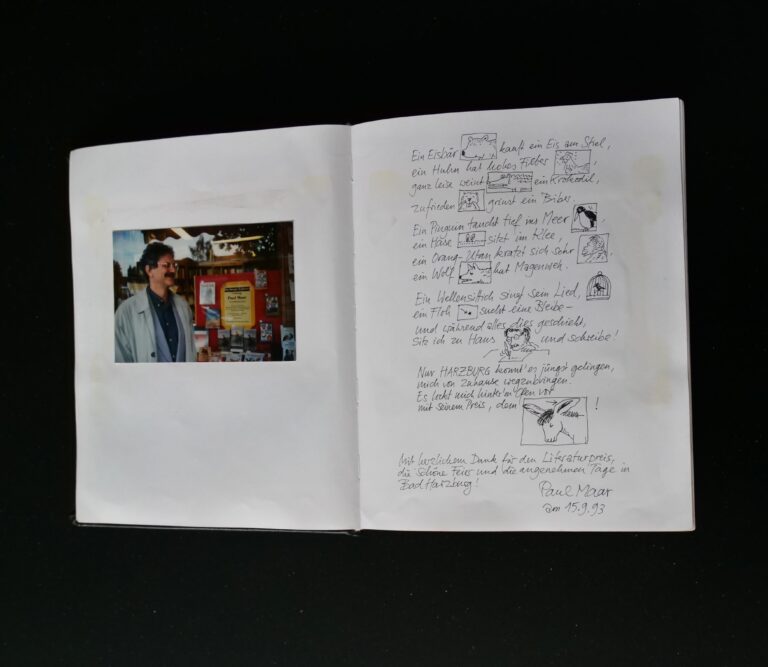 Paul Maar
Ein Eisbär kauft ein Eis am Stiel,
ein Huhn hat hohes Fieber,
ganz leise weint ein Krokodil,
zufrieden grinst ein Biber.
Ein Pinguin taucht tief ins Meer,
ein Hase sitzt im Klee,
ein Orang-Utan kratzt sich sehr,
ein Wolf hat Magenweh.
Ein Wellensittich singt sein Lied,
ein Floh sucht eine Bleibe –
und während alles dies geschieht,
sitz ich zu Haus und schreibe!
Nur HARZBURG konnt' es jüngst gelingen,
mich von zuhause wegzubringen.
Es lockt mich hinter'm Ofen vor
mit seinem Preis, dem !
Mit herzlichem Dank für den Literaturpreis,
die schöne Feier und die angenehmen Tage in
Bad Harzburg!
Paul Maar
am 15.9.93